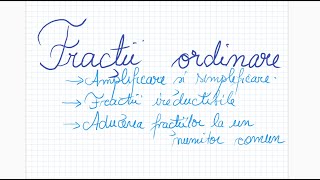 Fractii ordinare
→ Amplificare si simplificare.
→ Fractii ireductibile
→ Aducerea fractiilor la un
numitor comun